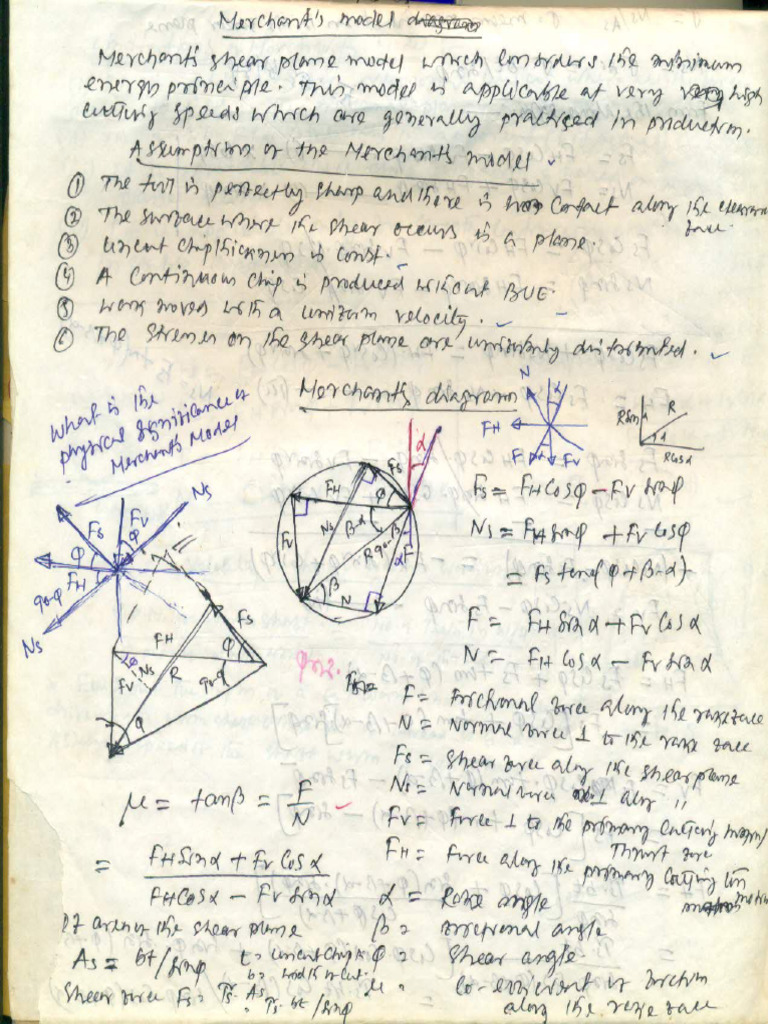 Merchant's model diagram
Merchant's shear plane model which considers the minimum
energy principle. This model is applicable at very very high
cutting speeds which are generally practised in production.
Assumptions of the Merchant's model
① The tool is perfectly sharp and there is no contact along the clearance face.
② The surface where the shear occurs is a plane.
③ uncut chip thickness is const.
④ A continuous chip is produced without BUE.
⑤ work moves with a uniform velocity.
⑥ The stresses on the shear plane are uniformly distributed.
What is the
physical significance of
Merchant's Model
Merchant's diagram
N
α
FH
F
Fv
R sinα
R
α
R cosα
Fs
Fv
Ns
φ
φ
FH
90-φ
Ns
FH
Fs
α
φ
Fv
Ns
β-α
R
90-β
α
F
β
N
FH
Fs
φ
Fv
Ns
R
90-φ
Fs = FH cosφ - Fv sinφ
Ns = FH sinφ + Fv cosφ
= Fs tan(φ+β-α)
F = FH sinα + Fv cosα
N = FH cosα - Fv sinα
F = frictional force along the rake face
N = Normal force ⊥ to the rake face
Fs = shear force along the shear plane
Ns = Normal force ⊥ along "
Fv = Force ⊥ to the primary cutting motion/
Thrust force
FH = force along the primary cutting
motion
α = Rake angle
β = frictional angle
φ = Shear angle
μ = co-efficient of friction
along the rake face
μ = tanβ = F/N
= (FH sinα + Fv cosα)/(FH cosα - Fv sinα)
If area of the shear plane
As = bt/sinφ
t = uncut chip
b = width of cut.
Shear force Fs = τs. As
= τs. bt/sinφ